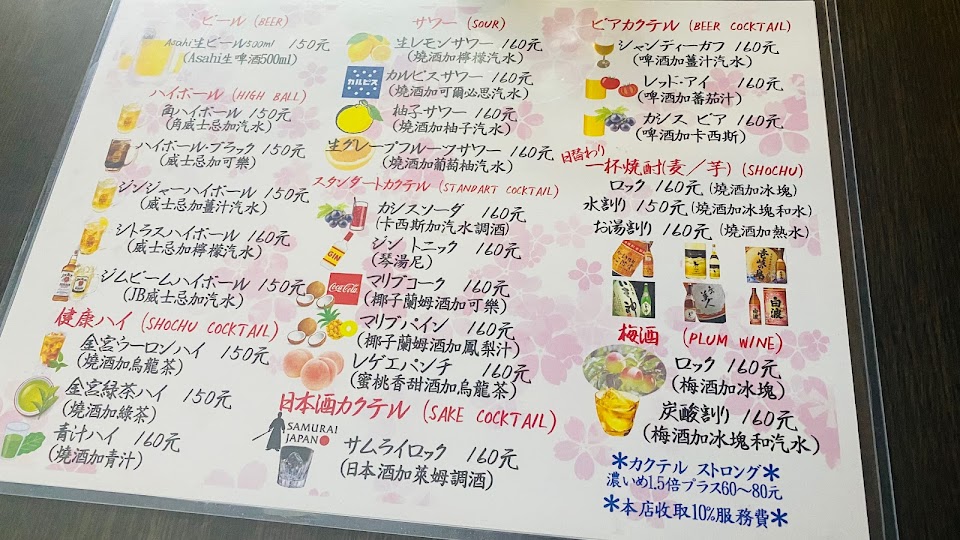 ビール (BEER)
Asahi生ビール500ml 150元
(Asahi生啤酒500ml)
ハイボール (HIGH BALL)
角ハイボール 150元
(角威士忌加汽水)
ハイボール・ブラック 150元
(威士忌加可樂)
ジンジャーハイボール 150元
(威士忌加薑汁汽水)
シトラスハイボール 160元
(威士忌加檸檬汽水)
ジムビームハイボール 160元
(JB威士忌加汽水)
健康ハイ (SHOCHU COCKTAIL)
金宮ウーロンハイ 150元
(燒酒加烏龍茶)
金宮緑茶ハイ 150元
(燒酒加綠茶)
青汁ハイ 160元
(燒酒加青汁)
サワー (SOUR)
生レモンサワー 160元
(燒酒加檸檬汽水)
カルピス
カルピスサワー 160元
(燒酒加可爾必思汽水)
柚子サワー 160元
(燒酒加柚子汽水)
生グレープフルーツサワー 160元
(燒酒加葡萄柚汽水)
スタンダートカクテル (STANDART COCKTAIL)
カシスソーダ 160元
(卡西斯加汽水調酒)
GIN
ジン トニック 160元
(琴湯尼)
Coca-Cola
マリブコーク 160元
(椰子蘭姆酒加可樂)
マリブパイン 160元
(椰子蘭姆酒加鳳梨汁)
レゲエパンチ 160元
(蜜桃香甜酒加烏龍茶)
日本酒カクテル (SAKE COCKTAIL)
SAMURAI
JAPAN
サムライロック 160元
(日本酒加萊姆調酒)
ビアカクテル (BEER COCKTAIL)
シャンディーガフ 160元
(啤酒加薑汁汽水)
レッド・アイ 160元
(啤酒加蕃茄汁)
カシス ビア 160元
(啤酒加卡西斯)
日替わり
一杯焼酎(麦／芋) (SHOCHU)
ロック 160元 (燒酒加冰塊)
水割り 150元 (燒酒加冰塊和水)
お湯割り 160元 (燒酒加熱水)
白波
梅酒 (PLUM WINE)
ロック 160元
(梅酒加冰塊)
炭酸割り 160元
(梅酒加冰塊和汽水)
＊カクテル ストロング＊
濃いめ1.5倍プラス60～80元
＊本店收取10%服務費＊